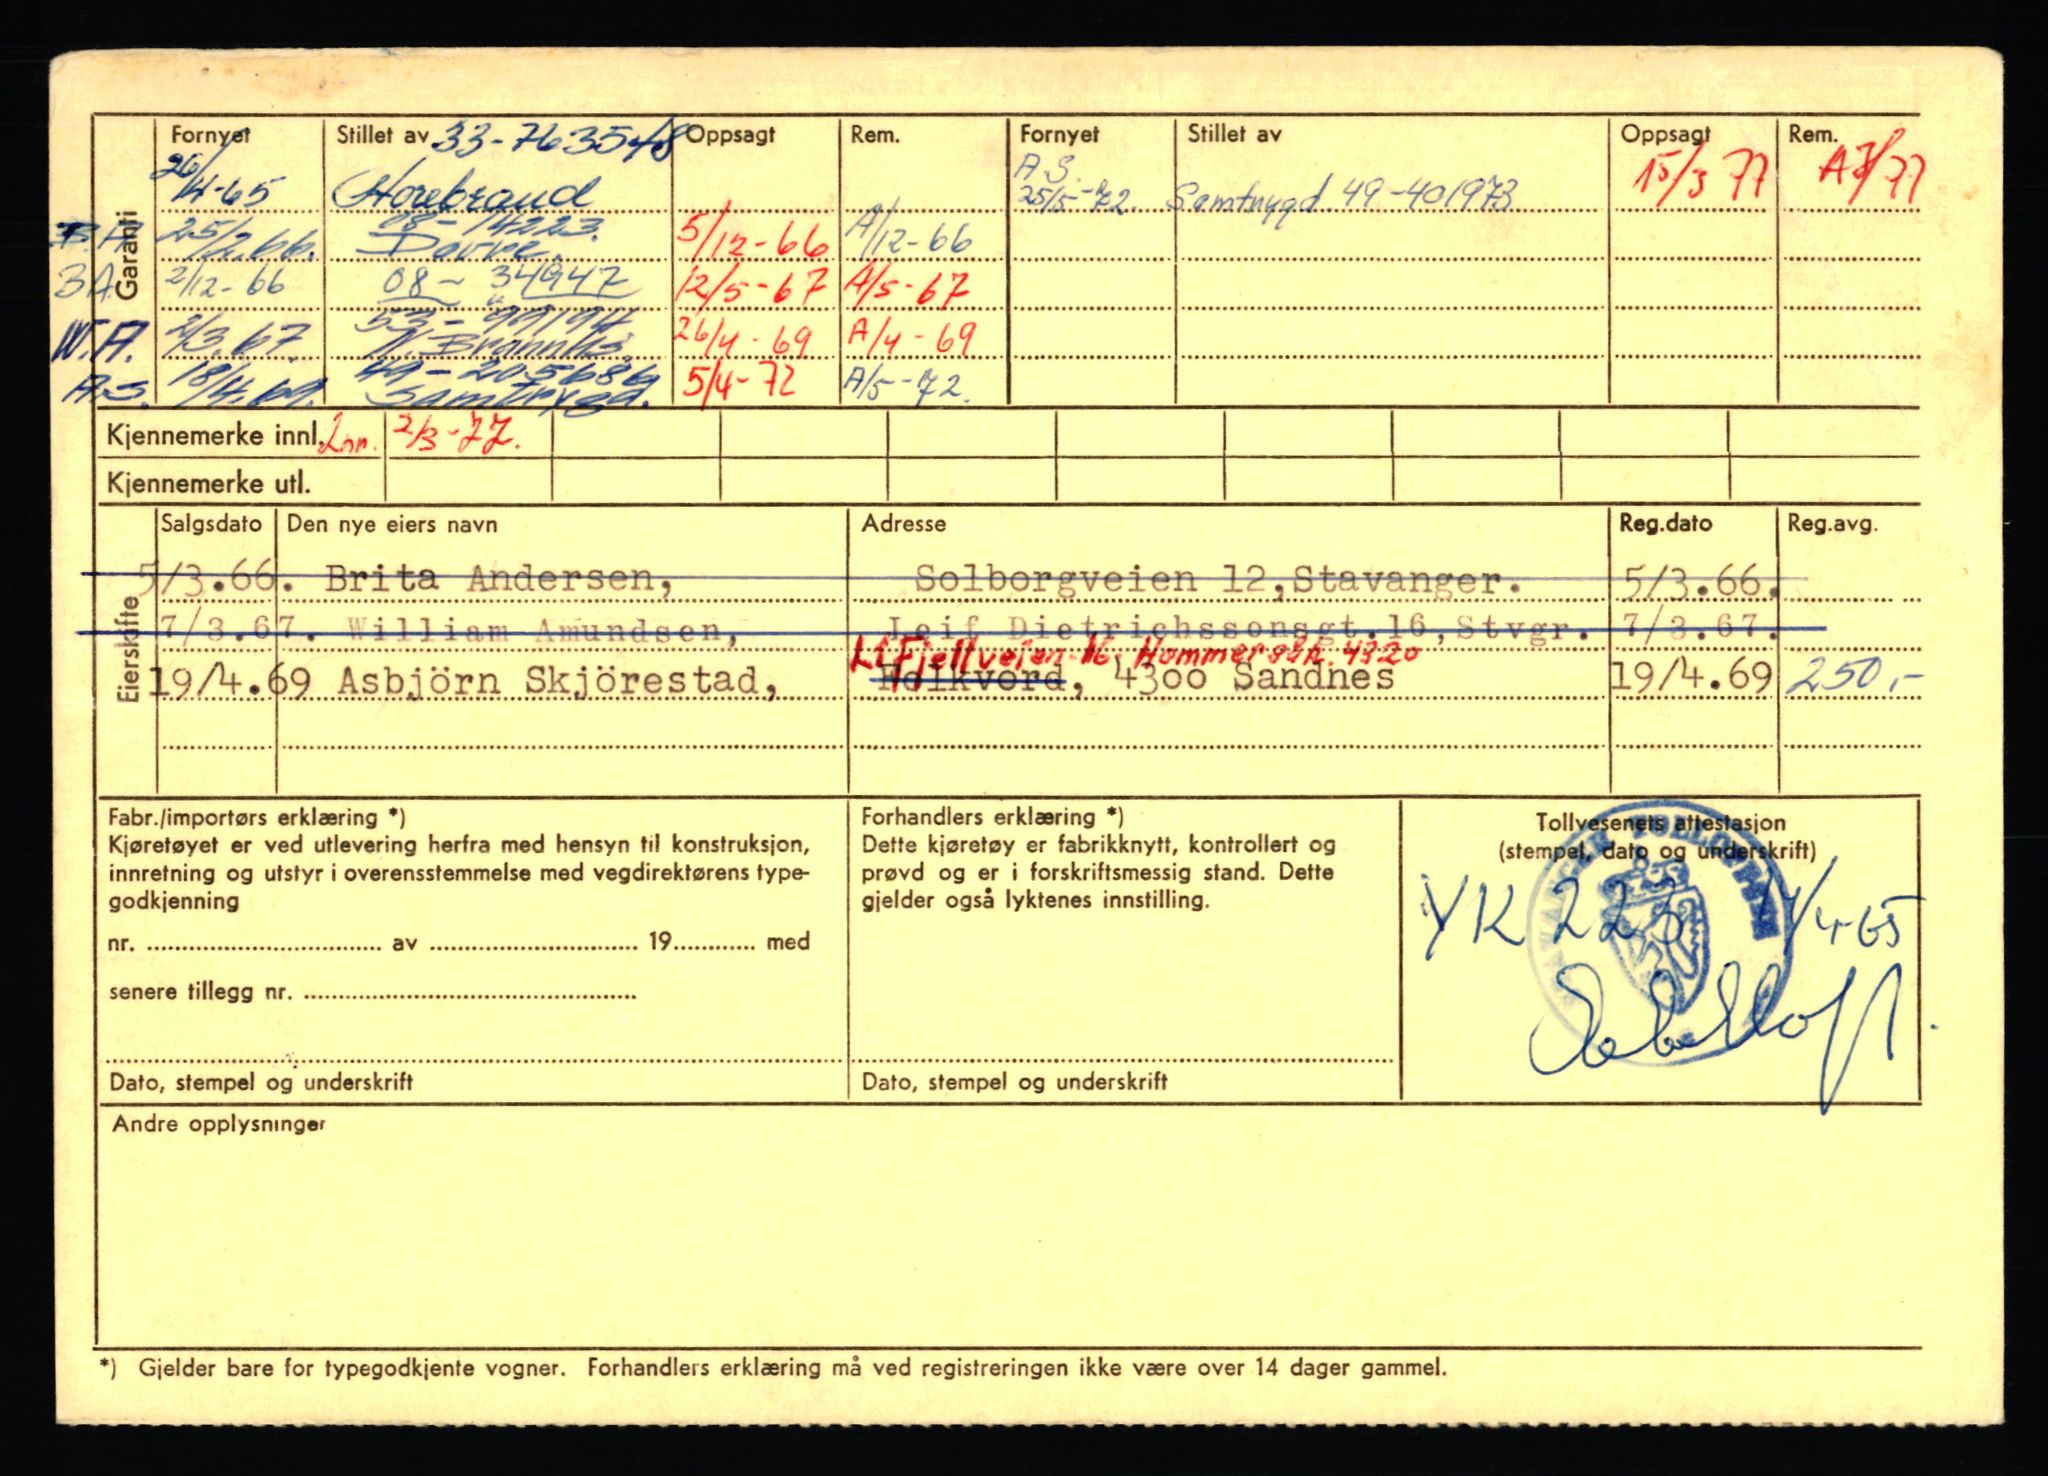 Garanti
Fornyet Stillet av 33-763548 Oppsagt Rem. Fornyet Stillet av Oppsagt Rem.
26/4-65 Storebrand A.S. 25/5-72. Samtrygd 49-401973 15/3 77 A3/77
B.A 25/2.66. 08-14223. Dovre. 5/12-66 A/12-66
B.A. 2/12-66 08-34947 12/5-67 A/5-67
W.A. 2/3.67. 53-99194. N. Brannks. 26/4-69 A/4-69
A.S. 18/4.69. 49-205686 Samtrygd. 5/4-72 A/5-72.
Kjennemerke innl. Inn. 2/3-77.
Kjennemerke utl.
Eierskifte
Salgsdato Den nye eiers navn Adresse Reg.dato Reg.avg.
5/3.66. Brita Andersen, Solborgveien 12,Stavanger. 5/3.66.
7/3.67. William Amundsen, Leif Dietrichssonsgt.16,Stvgr. 7/3.67.
Li Fjellveien 16, Hommersåk. 4320
19/4.69 Asbjörn Skjörestad, Folkvord, 4300 Sandnes 19/4.69 250,-
Fabr./importørs erklæring *)
Kjøretøyet er ved utlevering herfra med hensyn til konstruksjon,
innretning og utstyr i overensstemmelse med vegdirektørens type-
godkjenning
nr. ........ av ........ 19........ med
senere tillegg nr. ........
Dato, stempel og underskrift
Forhandlers erklæring *)
Dette kjøretøy er fabrikknytt, kontrollert og
prøvd og er i forskriftsmessig stand. Dette
gjelder også lyktenes innstilling.
Dato, stempel og underskrift
Tollvesenets attestasjon
(stempel, dato og underskrift)
STAVANGER TOLLSTED
YK 223 4-65
Andre opplysninger
*) Gjelder bare for typegodkjente vogner. Forhandlers erklæring må ved registreringen ikke være over 14 dager gammel.